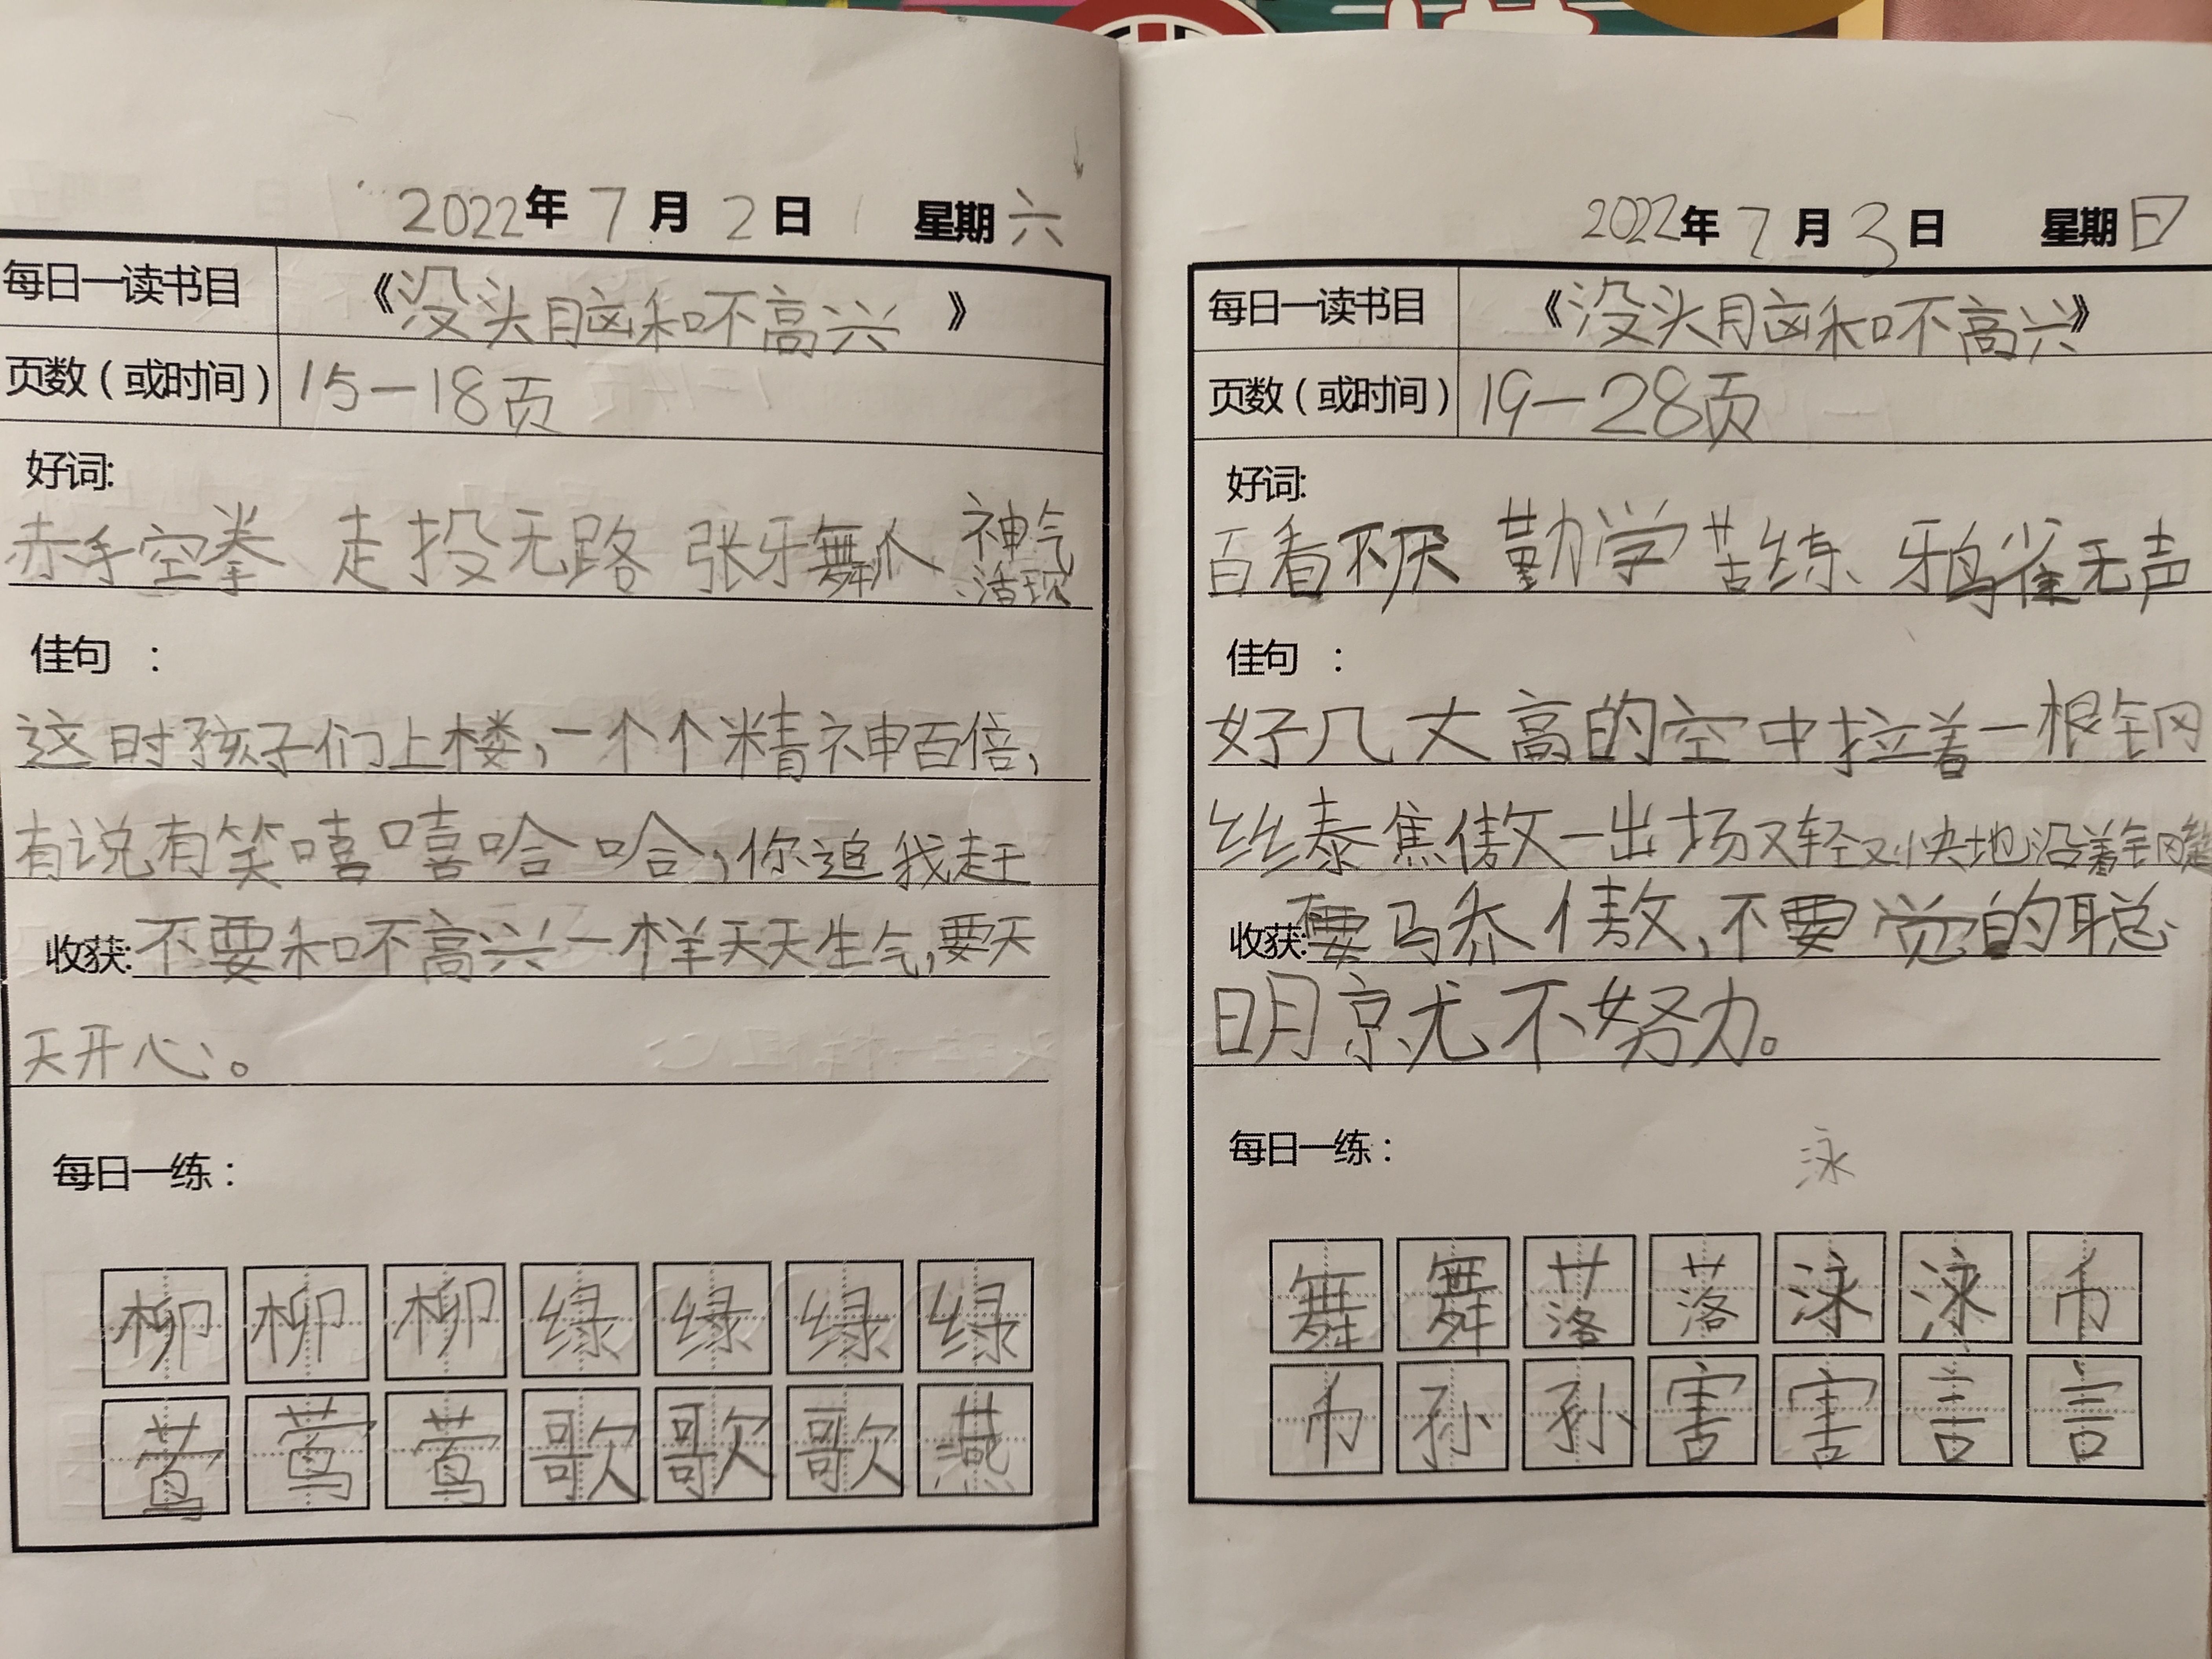 2022年7月2日 星期六
每日一读书目 《没头脑和不高兴》
页数（或时间） 15-18页
好词:
赤手空拳 走投无路 张牙舞爪 神气
活现
佳句 :
这时孩子们上楼,一个个精神百倍,
有说有笑嘻嘻哈哈,你追我赶
收获:不要和不高兴一样天天生气,要天
天开心。
每日一练:
柳 柳 柳 绿 绿 绿 绿
莺 莺 莺 歌 歌 歌 燕
2022年7月3日 星期日
每日一读书目 《没头脑和不高兴》
页数（或时间） 19-28页
好词:
百看不厌 勤学苦练 鸦雀无声
佳句 :
好几丈高的空中拉着一根钢
丝泰焦傲一出场又轻又快地沿着钢
收获:不要马乔傲,不要觉的聪
明就不努力。
每日一练:
泳
舞 舞 落 落 泳 泳 币
币 孙 孙 害 害 言 言